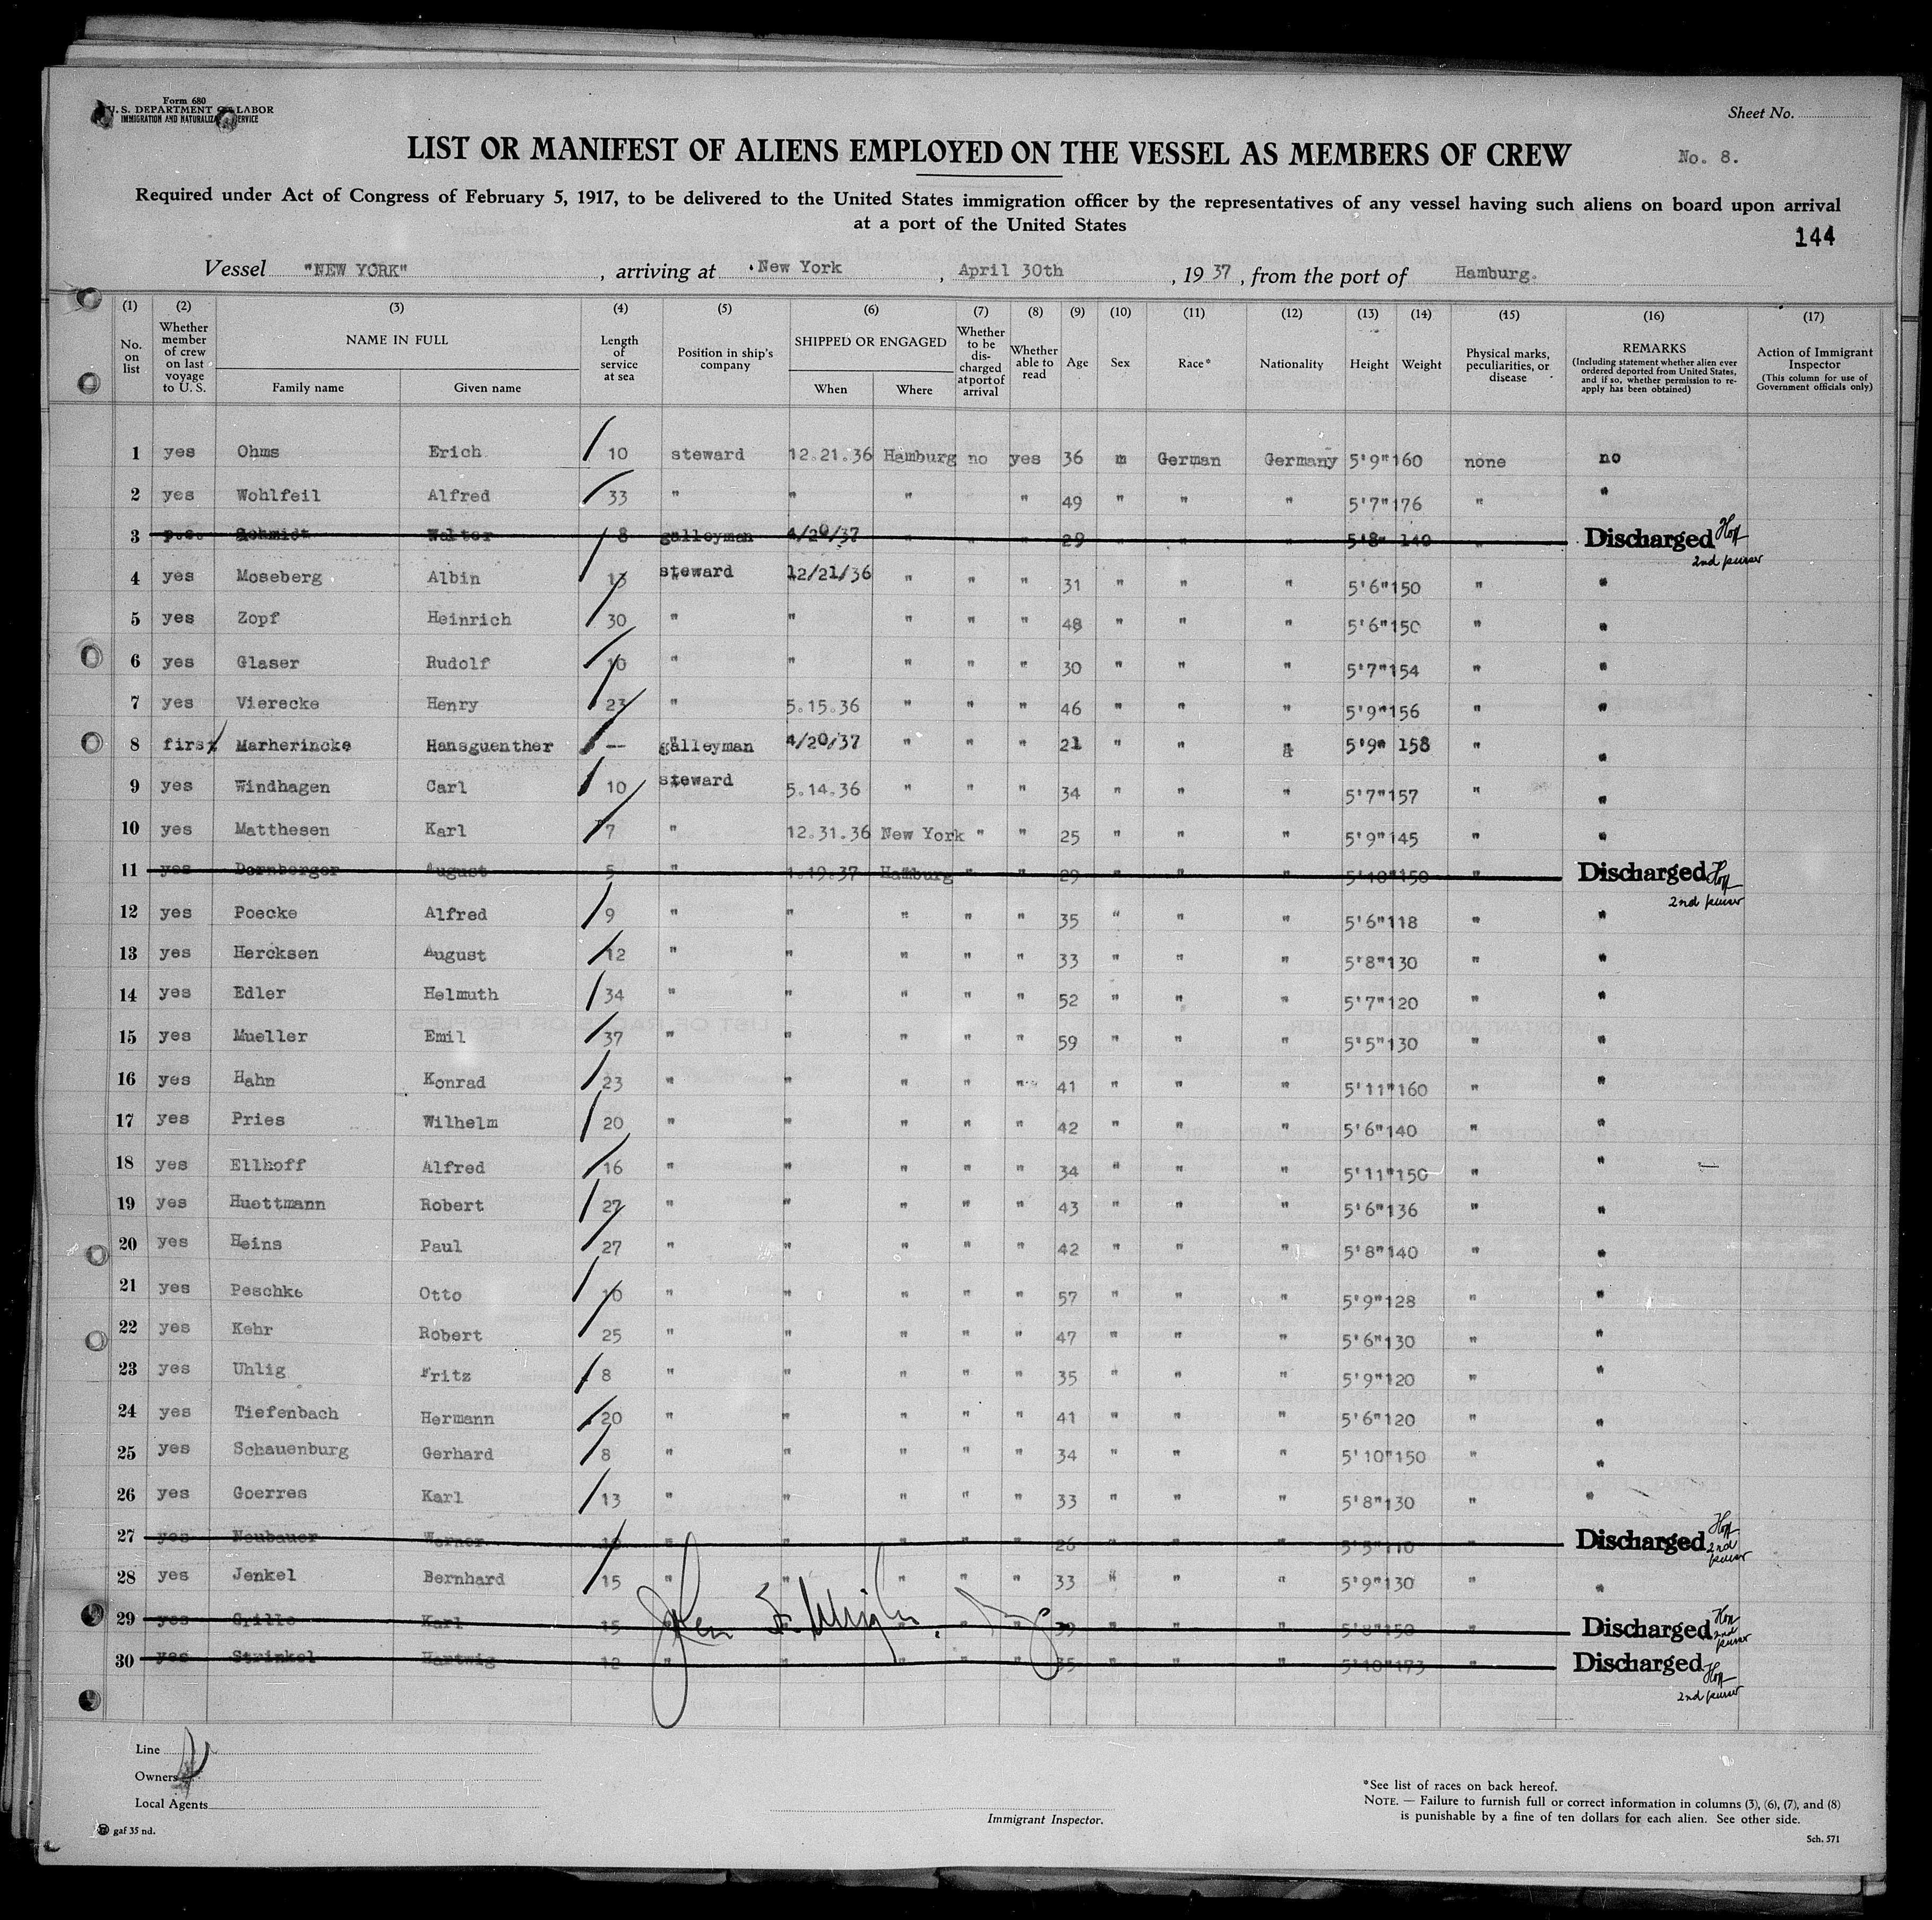 Form 680
U. S. DEPARTMENT OF LABOR
IMMIGRATION AND NATURALIZATION SERVICE
Sheet No.
LIST OR MANIFEST OF ALIENS EMPLOYED ON THE VESSEL AS MEMBERS OF CREW
No. 8.
Required under Act of Congress of February 5, 1917, to be delivered to the United States immigration officer by the representatives of any vessel having such aliens on board upon arrival
at a port of the United States
144
Vessel "NEW YORK", arriving at New York, April 30th, 1937, from the port of Hamburg.
(1) (2) (3) (4) (5) (6) (7) (8) (9) (10) (11) (12) (13) (14) (15) (16) (17)
No. on list
Whether member of crew on last voyage to U. S.
NAME IN FULL
Family name
Given name
Length of service at sea
Position in ship's company
SHIPPED OR ENGAGED
When
Where
Whether to be discharged at port of arrival
Whether able to read
Age
Sex
Race*
Nationality
Height
Weight
Physical marks, peculiarities, or disease
REMARKS
(Including statement whether alien ever ordered deported from United States, and if so, whether permission to reapply has been obtained)
Action of Immigrant Inspector
(This column for use of Government officials only)
1 yes Ohms Erich 10 steward 12.21.36 Hamburg no yes 36 m German Germany 5'9" 160 none no
2 yes Wohlfeil Alfred 33 " " " " 49 " " " 5'7" 176 " "
3 p.o. Schmidt Walter 8 galleyman 4/20/37 " " " 29 " " " 5'8" 140 " Discharged Hoff 2nd purser
4 yes Moseberg Albin 13 steward 12/21/36 " " " 31 " " " 5'6" 150 " "
5 yes Zopf Heinrich 30 " " " " " 48 " " " 5'6" 150 " "
6 yes Glaser Rudolf 10 " " " " " 30 " " " 5'7" 154 " "
7 yes Vierecke Henry 23 " 5.15.36 " " " 46 " " " 5'9" 156 " "
8 first Marherincke Hansguenther -- galleyman 4/20/37 " " " 21 " " " 5'9" 158 " "
9 yes Windhagen Carl 10 steward 5.14.36 " " " 34 " " " 5'7" 157 " "
10 yes Matthesen Karl 7 " 12.31.36 New York " " 25 " " " 5'9" 145 " "
11 yes Dornberger August 5 " 1.19.37 Hamburg " " 29 " " " 5'10" 150 " Discharged Hoff 2nd purser
12 yes Poecke Alfred 9 " " " " " 35 " " " 5'6" 118 " "
13 yes Hercksen August 12 " " " " " 33 " " " 5'8" 130 " "
14 yes Edler Helmuth 34 " " " " " 52 " " " 5'7" 120 " "
15 yes Mueller Emil 37 " " " " " 59 " " " 5'5" 130 " "
16 yes Hahn Konrad 23 " " " " " 41 " " " 5'11" 160 " "
17 yes Pries Wilhelm 20 " " " " " 42 " " " 5'6" 140 " "
18 yes Ellhoff Alfred 16 " " " " " 34 " " " 5'11" 150 " "
19 yes Huettmann Robert 27 " " " " " 43 " " " 5'6" 136 " "
20 yes Heins Paul 27 " " " " " 42 " " " 5'8" 140 " "
21 yes Peschke Otto 10 " " " " " 57 " " " 5'9" 128 " "
22 yes Kehr Robert 25 " " " " " 47 " " " 5'6" 130 " "
23 yes Uhlig Fritz 8 " " " " " 35 " " " 5'9" 120 " "
24 yes Tiefenbach Hermann 20 " " " " " 41 " " " 5'6" 120 " "
25 yes Schauenburg Gerhard 8 " " " " " 34 " " " 5'10" 150 " "
26 yes Goerres Karl 13 " " " " " 33 " " " 5'8" 130 " "
27 yes Neubauer Werner " " " " " 26 " " " 5'5" 110 " Discharged Hoff 2nd purser
28 yes Jenkel Bernhard 15 " " " " " 33 " " " 5'9" 130 " "
29 yes Grille Karl 15 " " " " 39 " " " 5'8" 150 " Discharged Hoff 2nd purser
30 yes Strinkel Hartwig 12 " " " " " 35 " " " 5'10" 173 " Discharged Hoff 2nd purser
Line
Owners
Local Agents
gaf 35 nd.
Immigrant Inspector.
*See list of races on back hereof.
NOTE. — Failure to furnish full or correct information in columns (3), (6), (7), and (8)
is punishable by a fine of ten dollars for each alien. See other side.
Sch. 571